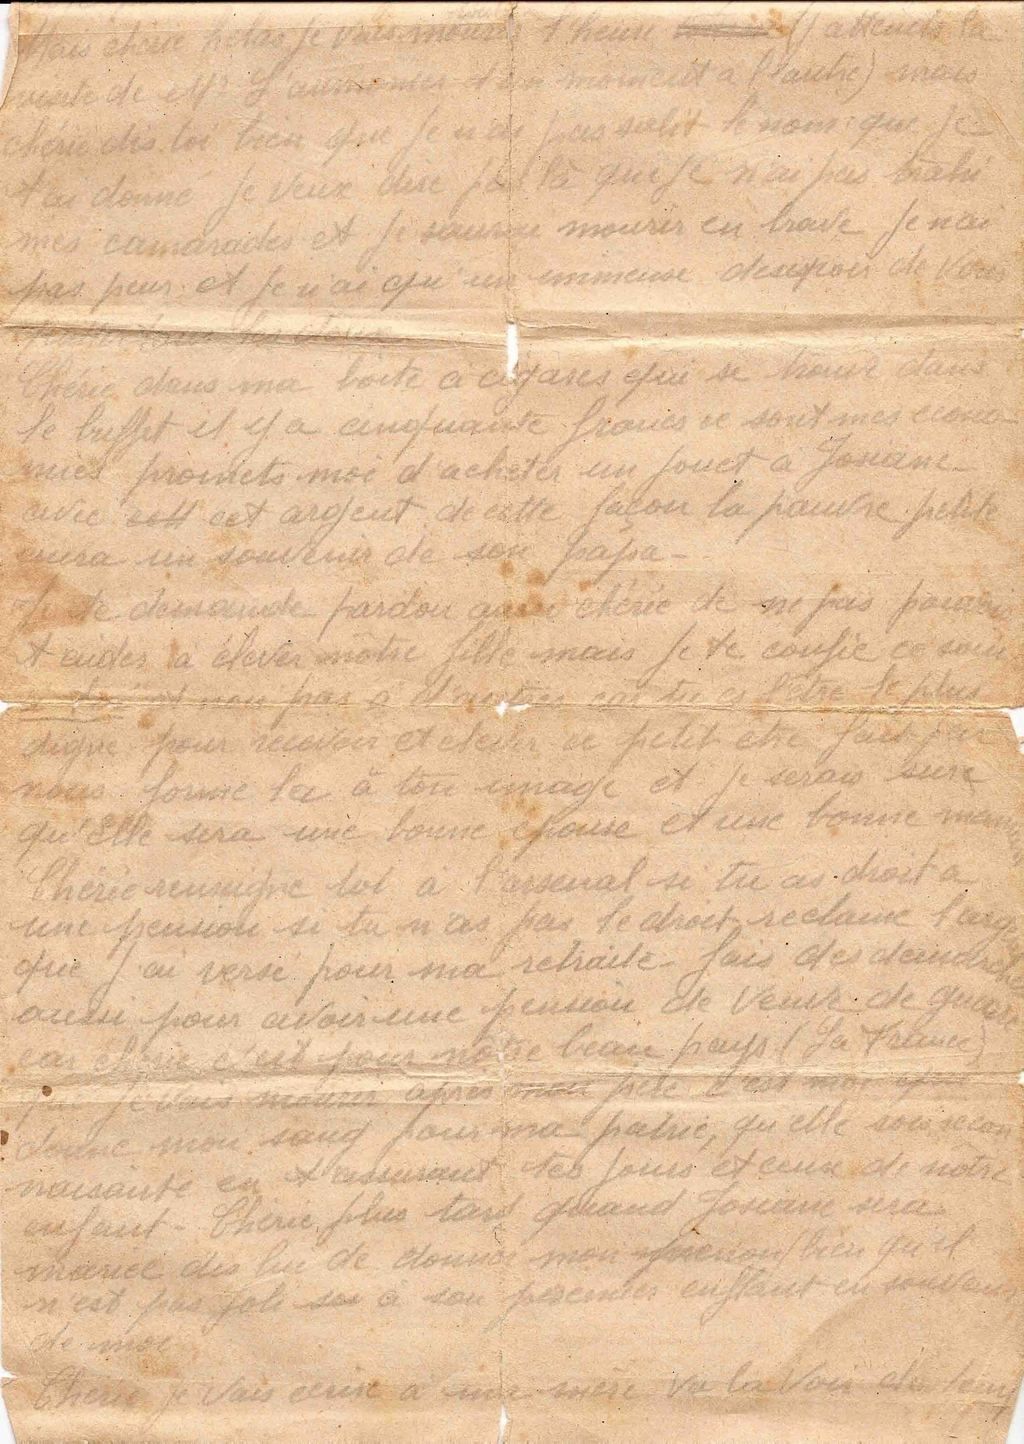 Mais chérie hélas je vais mourir tout à l'heure (J'attends la
visite de Mr L'aumonier d'un moment à l'autre) mais
chérie dis toi bien que je n'ai pas salit le nom que je
t'ai donné je veux dire par là que je n'ai pas trahi
mes camarades et je saurai mourir en brave je n'ai
pas peur et je n'ai qu'un immense desespoir de vous
Chérie dans ma boite a cigares qui se trouve dans
le buffet il y a cinquante francs ce sont mes écono
mies promets moi d'acheter un jouet a Josiane
avec cet argent de cette façon la pauvre petite
aura un souvenir de son papa -
Je te demande pardon aussi chérie de ne pas pouvoir
t'aider à élever notre fille mais je te confie ce soin
à toi et non pas à d'autres car tu es l'être le plus
digne pour recevoir et élever ce petit etre fait par
nous forme la à ton image et je serais sure
qu'Elle sera une bonne épouse et une bonne maman
Chérie renseigne toi à l'arsenal si tu as droit a
une pension si tu n'as pas le droit reclame l'argent
que j'ai versé pour ma retraite - fais des demarches
aussi pour avoir une pension de Veuve de guerre
car chérie c'est pour notre beau pays (La France)
que je vais mourir après mon père c'est moi qui
donne mon sang pour ma patrie, qu'elle sois recon
naisante en t'assurant tes jours et ceux de notre
enfant - Chérie, plus tard quand Josiane sera
mariée dis lui de donner mon prenom (bien qu'il
n'est pas joli à son premier enfant en souvenir
de moi
Chérie je vais ecrire a ma mère